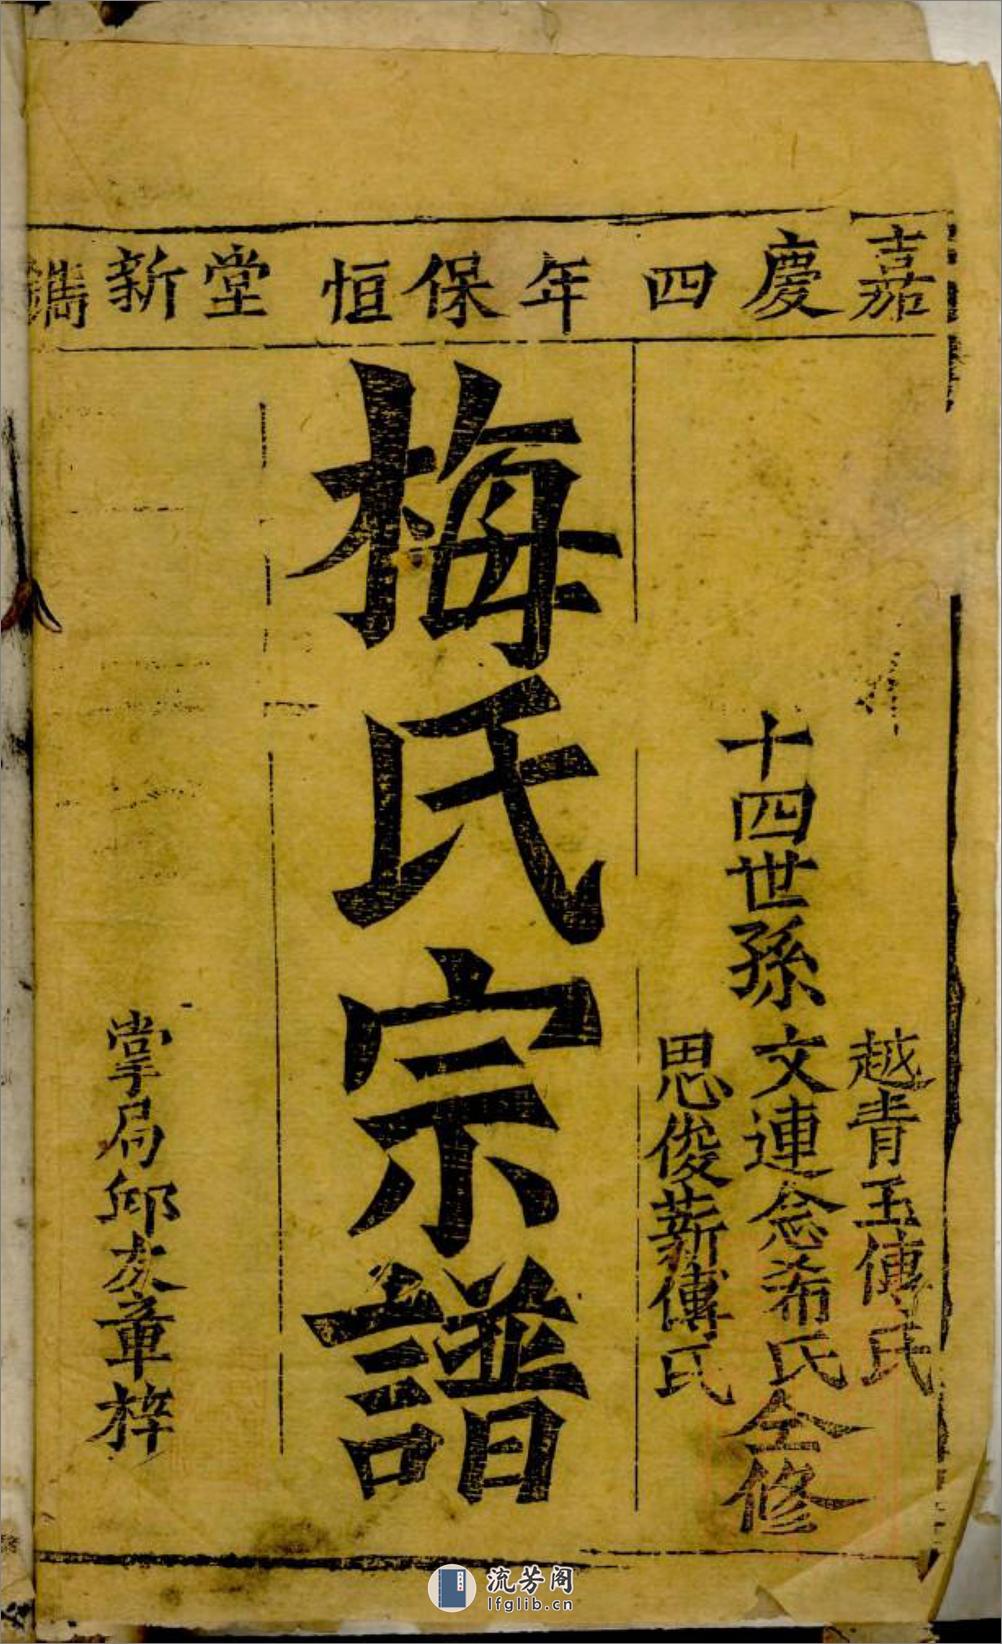 嘉慶四年保恒堂新鐫
十四世孫
越青玉傳氏
文連念希氏
思俊薪傳氏
仝修
梅氏宗譜
掌局邱友章梓
流芳阁
lfglib.cn